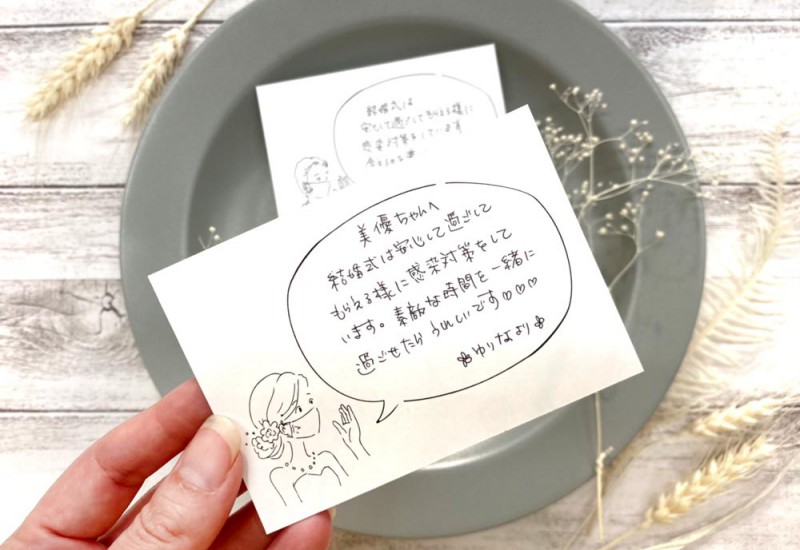 結婚式は
安心して過ごしてもらえる様に
感染対策をしています
美優ちゃんへ
結婚式は安心して過ごして
もらえる様に感染対策をして
います。素敵な時間を一緒に
過ごせたらうれしいです♡♡♡
ゆりなより